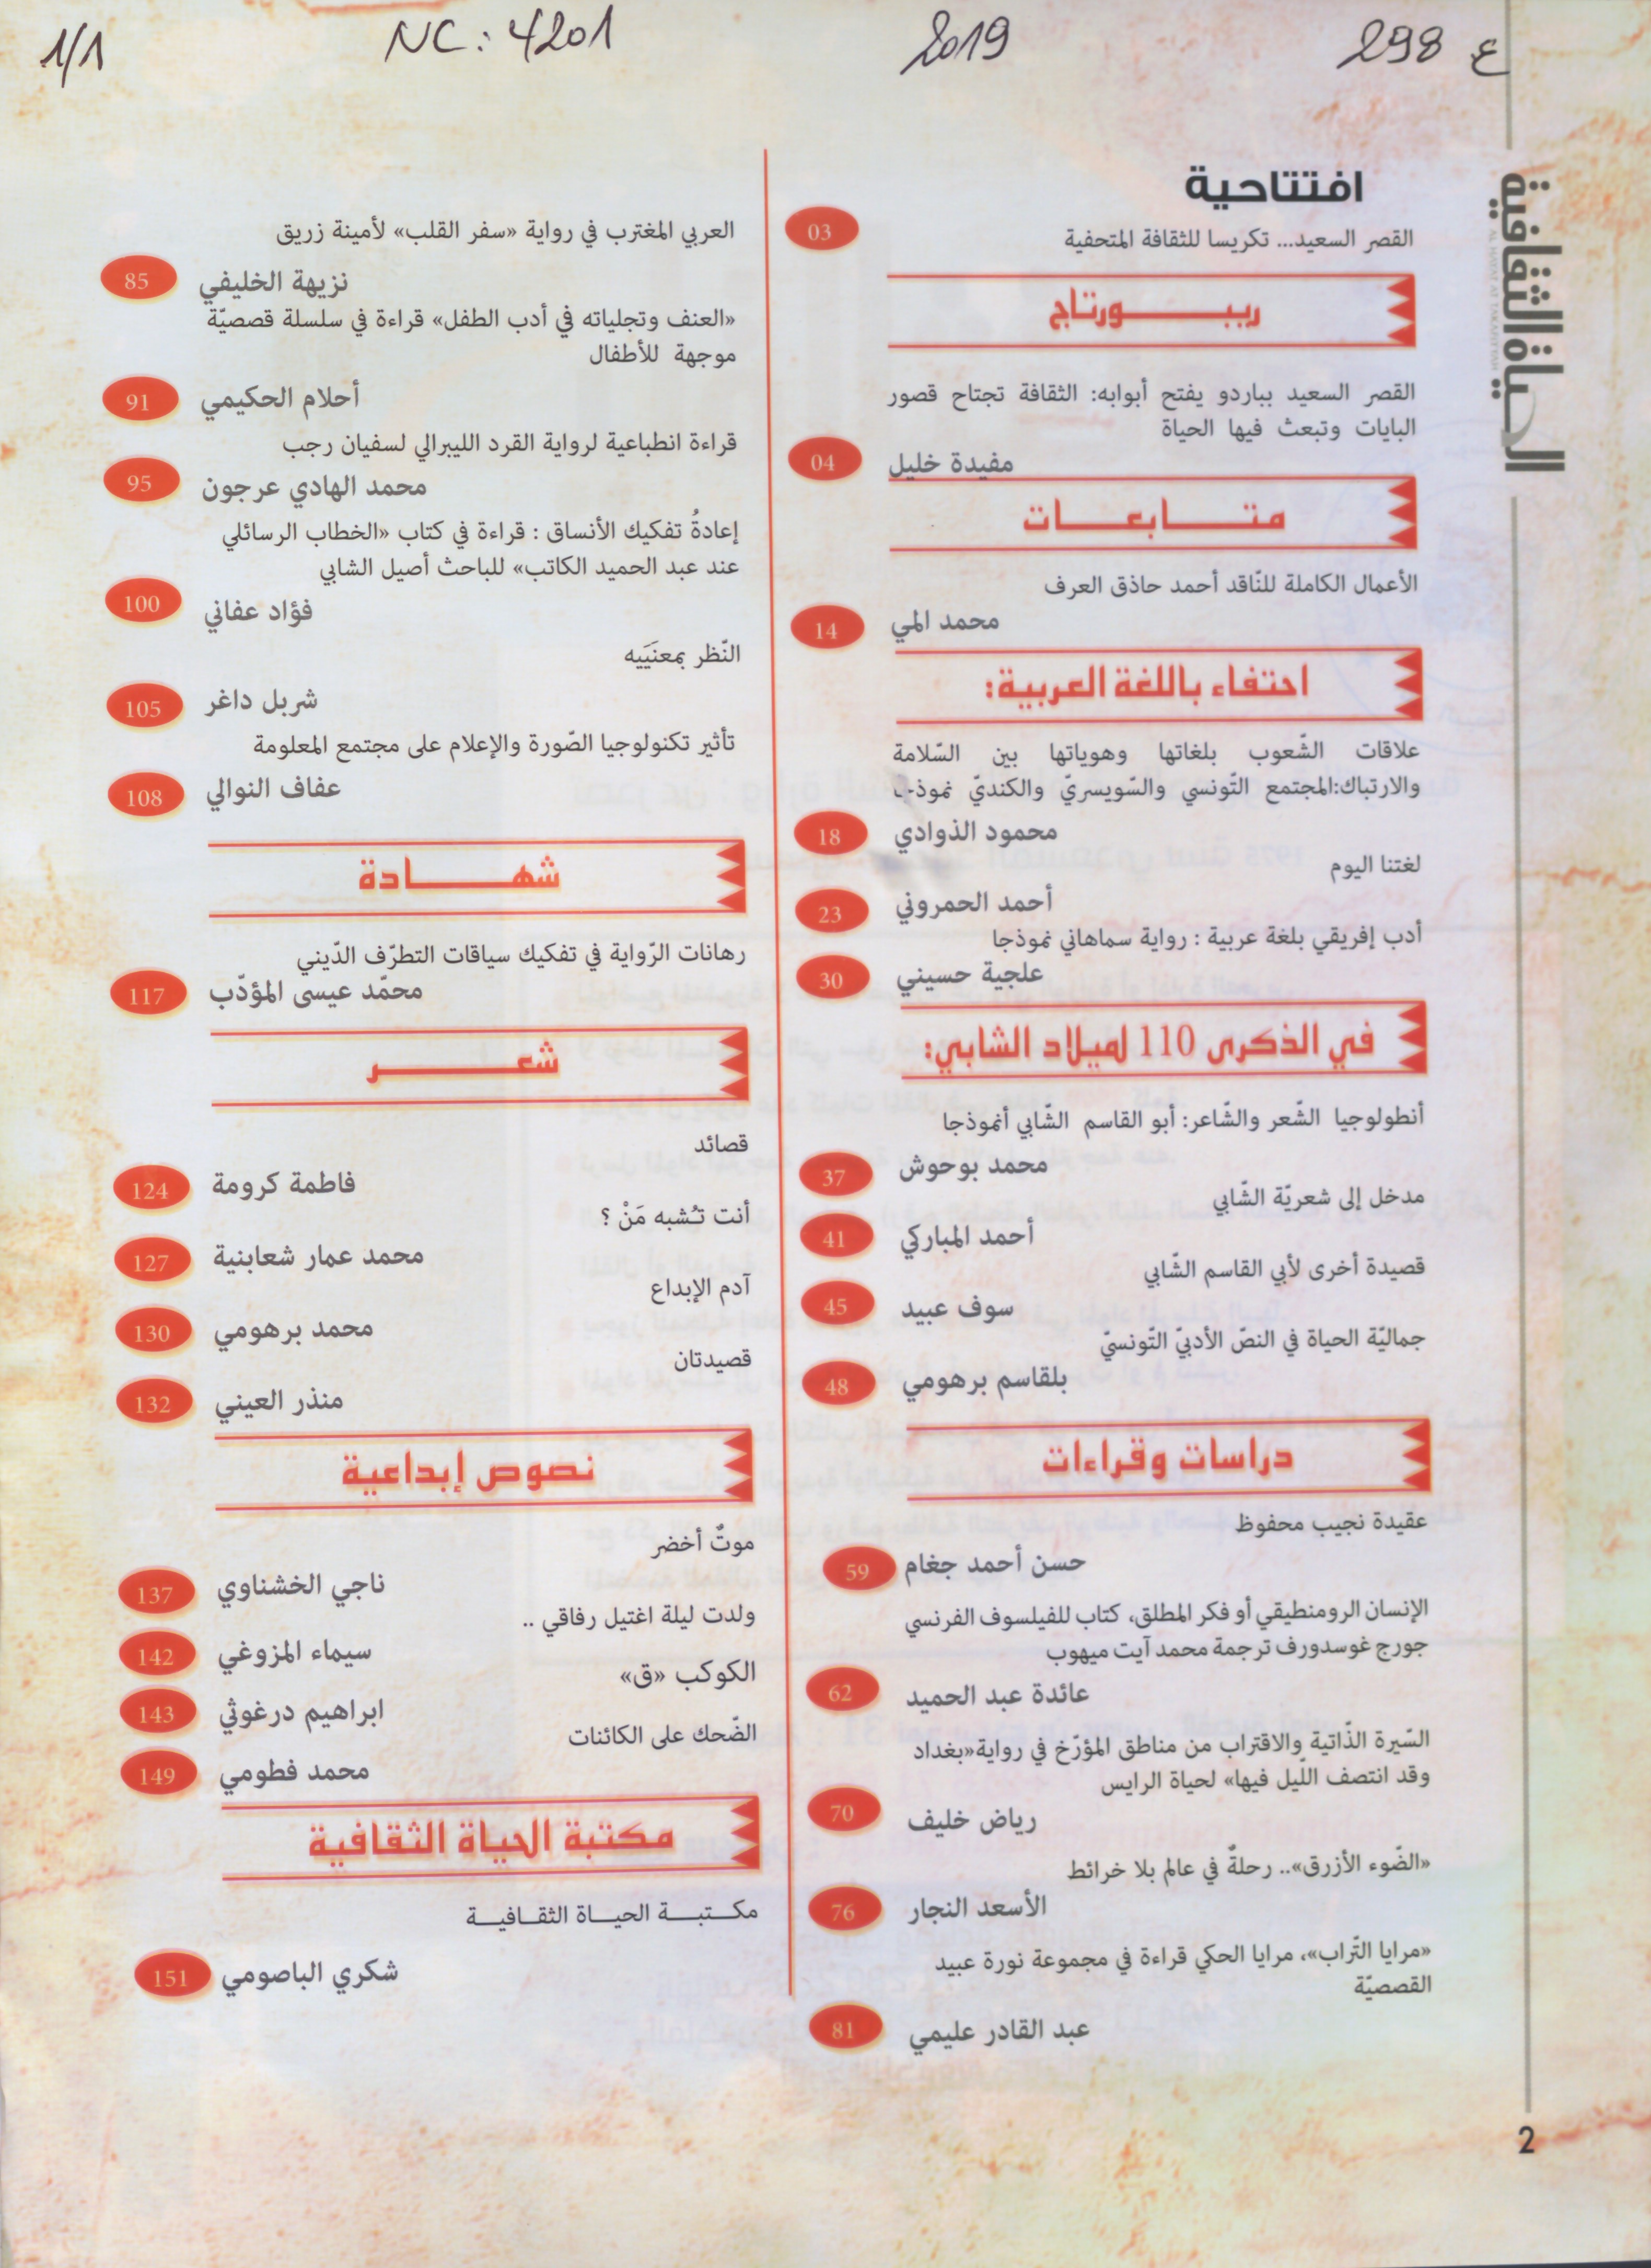 ع 298
2019
NC: 4201
1/1
الحياة الثقافية
افتتاحية
القصر السعيد... تكريسا للثقافة المتحفية
03
ريبورتاج
القصر السعيد بباردو يفتح أبوابه: الثقافة تجتاح قصور
البايات وتبعث فيها الحياة
مفيدة خليل
04
متابعات
الأعمال الكاملة للنّاقد أحمد حاذق العرف
محمد المي
14
احتفاء باللغة العربية:
علاقات الشّعوب بلغاتها وهوياتها بين السّلامة
والارتباك:المجتمع التّونسي والسّويسريّ والكنديّ نموذجا
محمود الذوادي
18
لغتنا اليوم
أحمد الحمروني
23
أدب إفريقي بلغة عربية : رواية سماهاني نموذجا
علجية حسيني
30
في الذكرى 110 لميلاد الشابي:
أنطولوجيا الشّعر والشّاعر: أبو القاسم الشّابي أنموذجا
محمد بوحوش
37
مدخل إلى شعريّة الشّابي
أحمد المباركي
41
قصيدة أخرى لأبي القاسم الشّابي
سوف عبيد
45
جماليّة الحياة في النصّ الأدبيّ التّونسيّ
بلقاسم برهومي
48
دراسات وقراءات
عقيدة نجيب محفوظ
حسن أحمد جغام
59
الإنسان الرومنطيقي أو فكر المطلق، كتاب للفيلسوف الفرنسي
جورج غوسدورف ترجمة محمد آيت ميهوب
عائدة عبد الحميد
62
السّيرة الذّاتية والاقتراب من مناطق المؤرّخ في رواية«بغداد
وقد انتصف اللّيل فيها» لحياة الرايس
رياض خليف
70
«الضّوء الأزرق».. رحلةٌ في عالم بلا خرائط
الأسعد النجار
76
«مرايا التّراب»، مرايا الحكي قراءة في مجموعة نورة عبيد
القصصيّة
عبد القادر عليمي
81
العربي المغترب في رواية «سفر القلب» لأمينة زريق
نزيهة الخليفي
85
«العنف وتجلياته في أدب الطفل» قراءة في سلسلة قصصيّة
موجهة للأطفال
أحلام الحكيمي
91
قراءة انطباعية لرواية القرد الليبرالي لسفيان رجب
محمد الهادي عرجون
95
إعادةُ تفكيك الأنساق : قراءة في كتاب «الخطاب الرسائلي
عند عبد الحميد الكاتب» للباحث أصيل الشابي
فؤاد عفاني
100
النّظر بمعنَييه
شربل داغر
105
تأثير تكنولوجيا الصّورة والإعلام على مجتمع المعلومة
عفاف النوالي
108
شهادة
رهانات الرّواية في تفكيك سياقات التطرّف الدّيني
محمّد عيسى المؤدّب
117
شعر
قصائد
فاطمة كرومة
124
أنت تُشبه مَنْ ؟
محمد عمار شعابنية
127
آدم الإبداع
محمد برهومي
130
قصيدتان
منذر العيني
132
نصوص إبداعية
موتٌ أخضر
ناجي الخشناوي
137
ولدت ليلة اغتيل رفاقي ..
سيماء المزوغي
142
الكوكب «ق»
ابراهيم درغوثي
143
الضّحك على الكائنات
محمد فطومي
149
مكتبة الحياة الثقافية
مكتبة الحياة الثقافية
شكري الباصومي
151
2